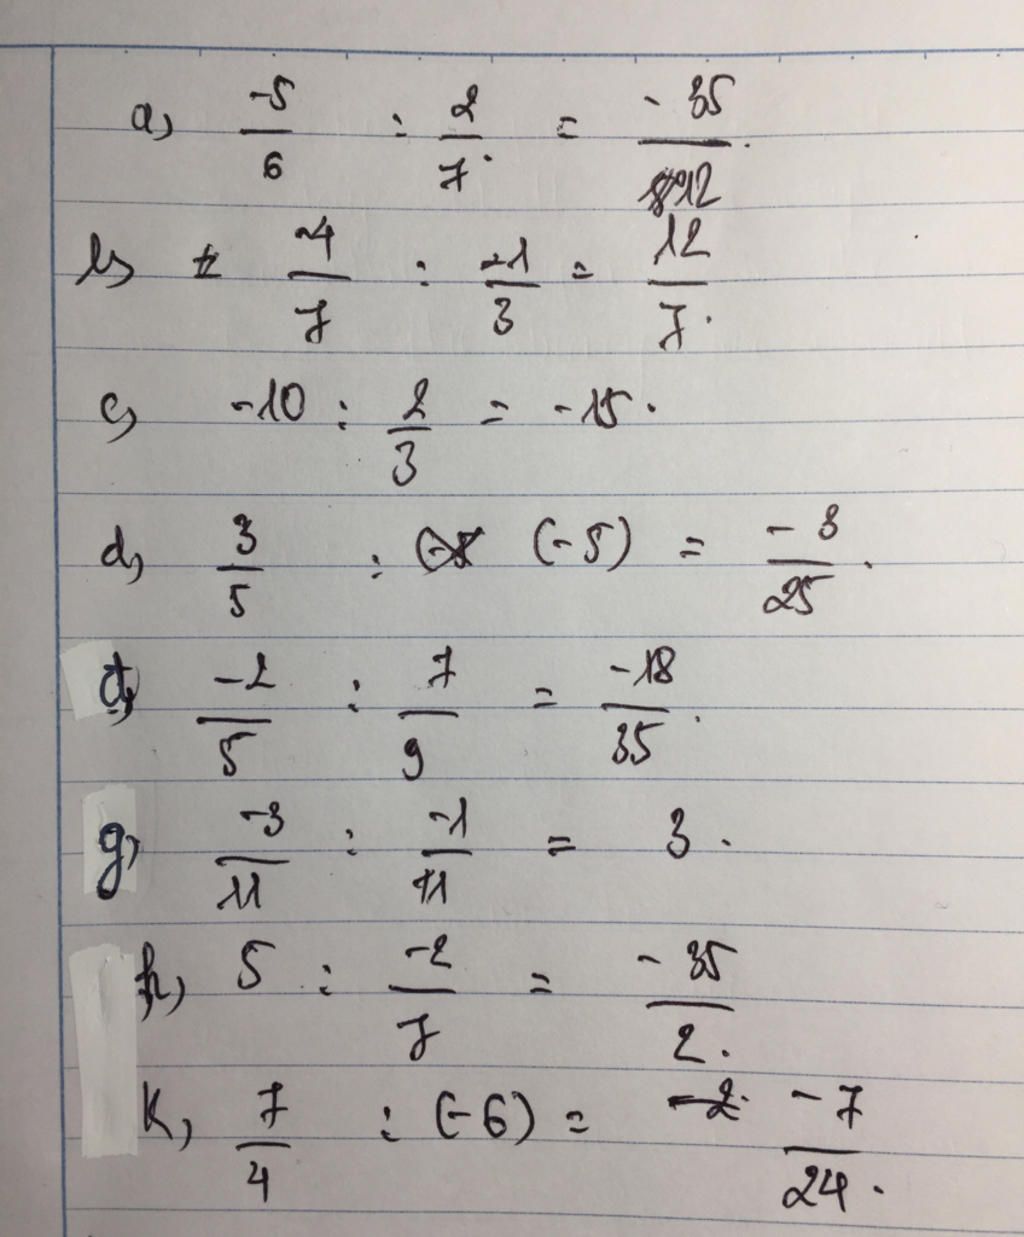 a, -5/6 : 2/7. = -35/12.
b, -4/7 : -1/3 = 12/7.
c, -10 : 2/3 = -15.
d, 3/5 : (-5) = -3/25.
đ, -2/5 : 7/9 = -18/35.
g, -3/11 : -1/11 = 3.
h, 5 : -2/7 = -35/2.
k, 7/4 : (-6) = -7/24.